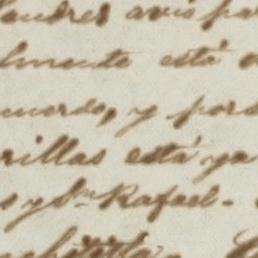 londres avis pa
lmente está a
cuerdo, y pors
rillas está ya
s y Sn. Rafael.-